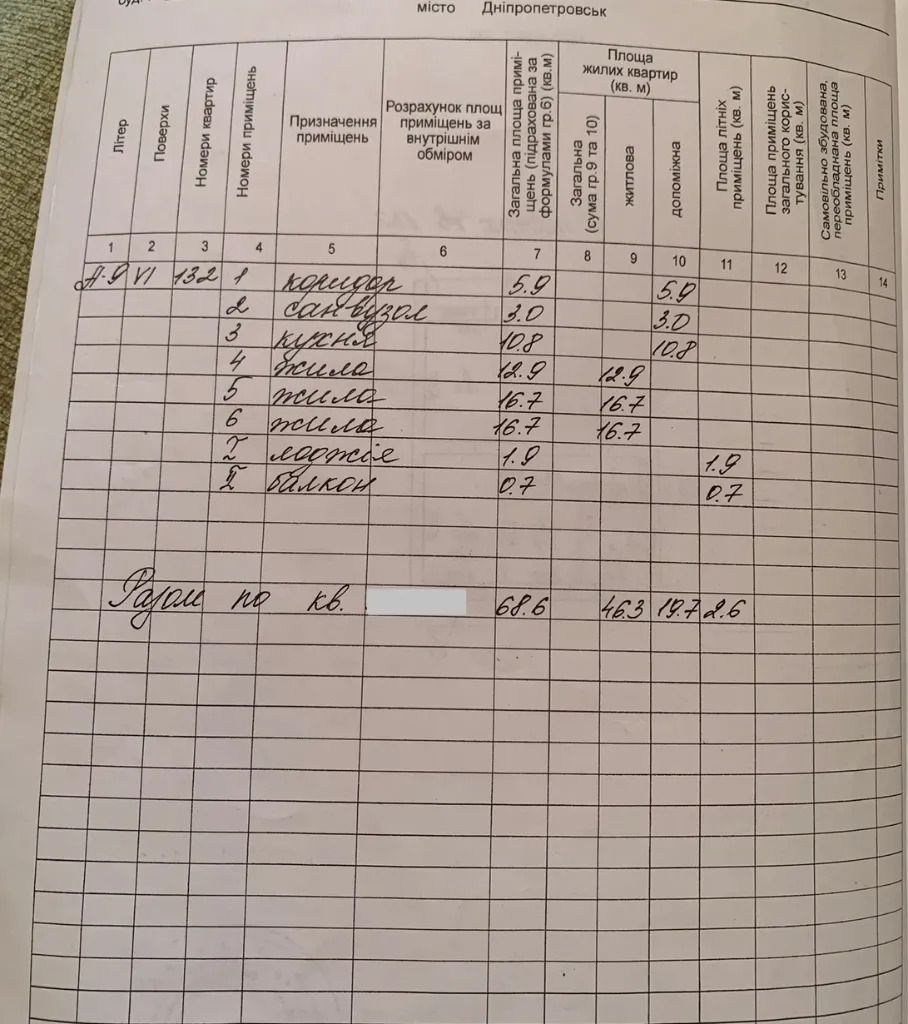 місто Дніпропетровськ
Літер
Поверхи
Номери квартир
Номери приміщень
Призначення приміщень
Розрахунок площ приміщень за внутрішнім обміром
Загальна площа примі-
щень (підрахована за
формулами гр.6) (кв.м)
Площа
жилих квартир
(кв. м)
Загальна
(сума гр.9 та 10)
житлова
допоміжна
Площа літніх
приміщень (кв. м)
Площа приміщень
загального корис-
тування (кв. м)
Самовільно збудована,
переобладнана площа
приміщень (кв. м)
Примітки
1 2 3 4 5 6 7 8 9 10 11 12 13 14
А-9 VI 132 1 коридор 5.9 5.9
2 санвузол 3.0 3.0
3 кухня 10.8 10.8
4 жила 12.9 12.9
5 жила 16.7 16.7
6 жила 16.7 16.7
I лоджія 1.9 1.9
II балкон 0.7 0.7
Разом по кв. 68.6 46.3 19.7 2.6